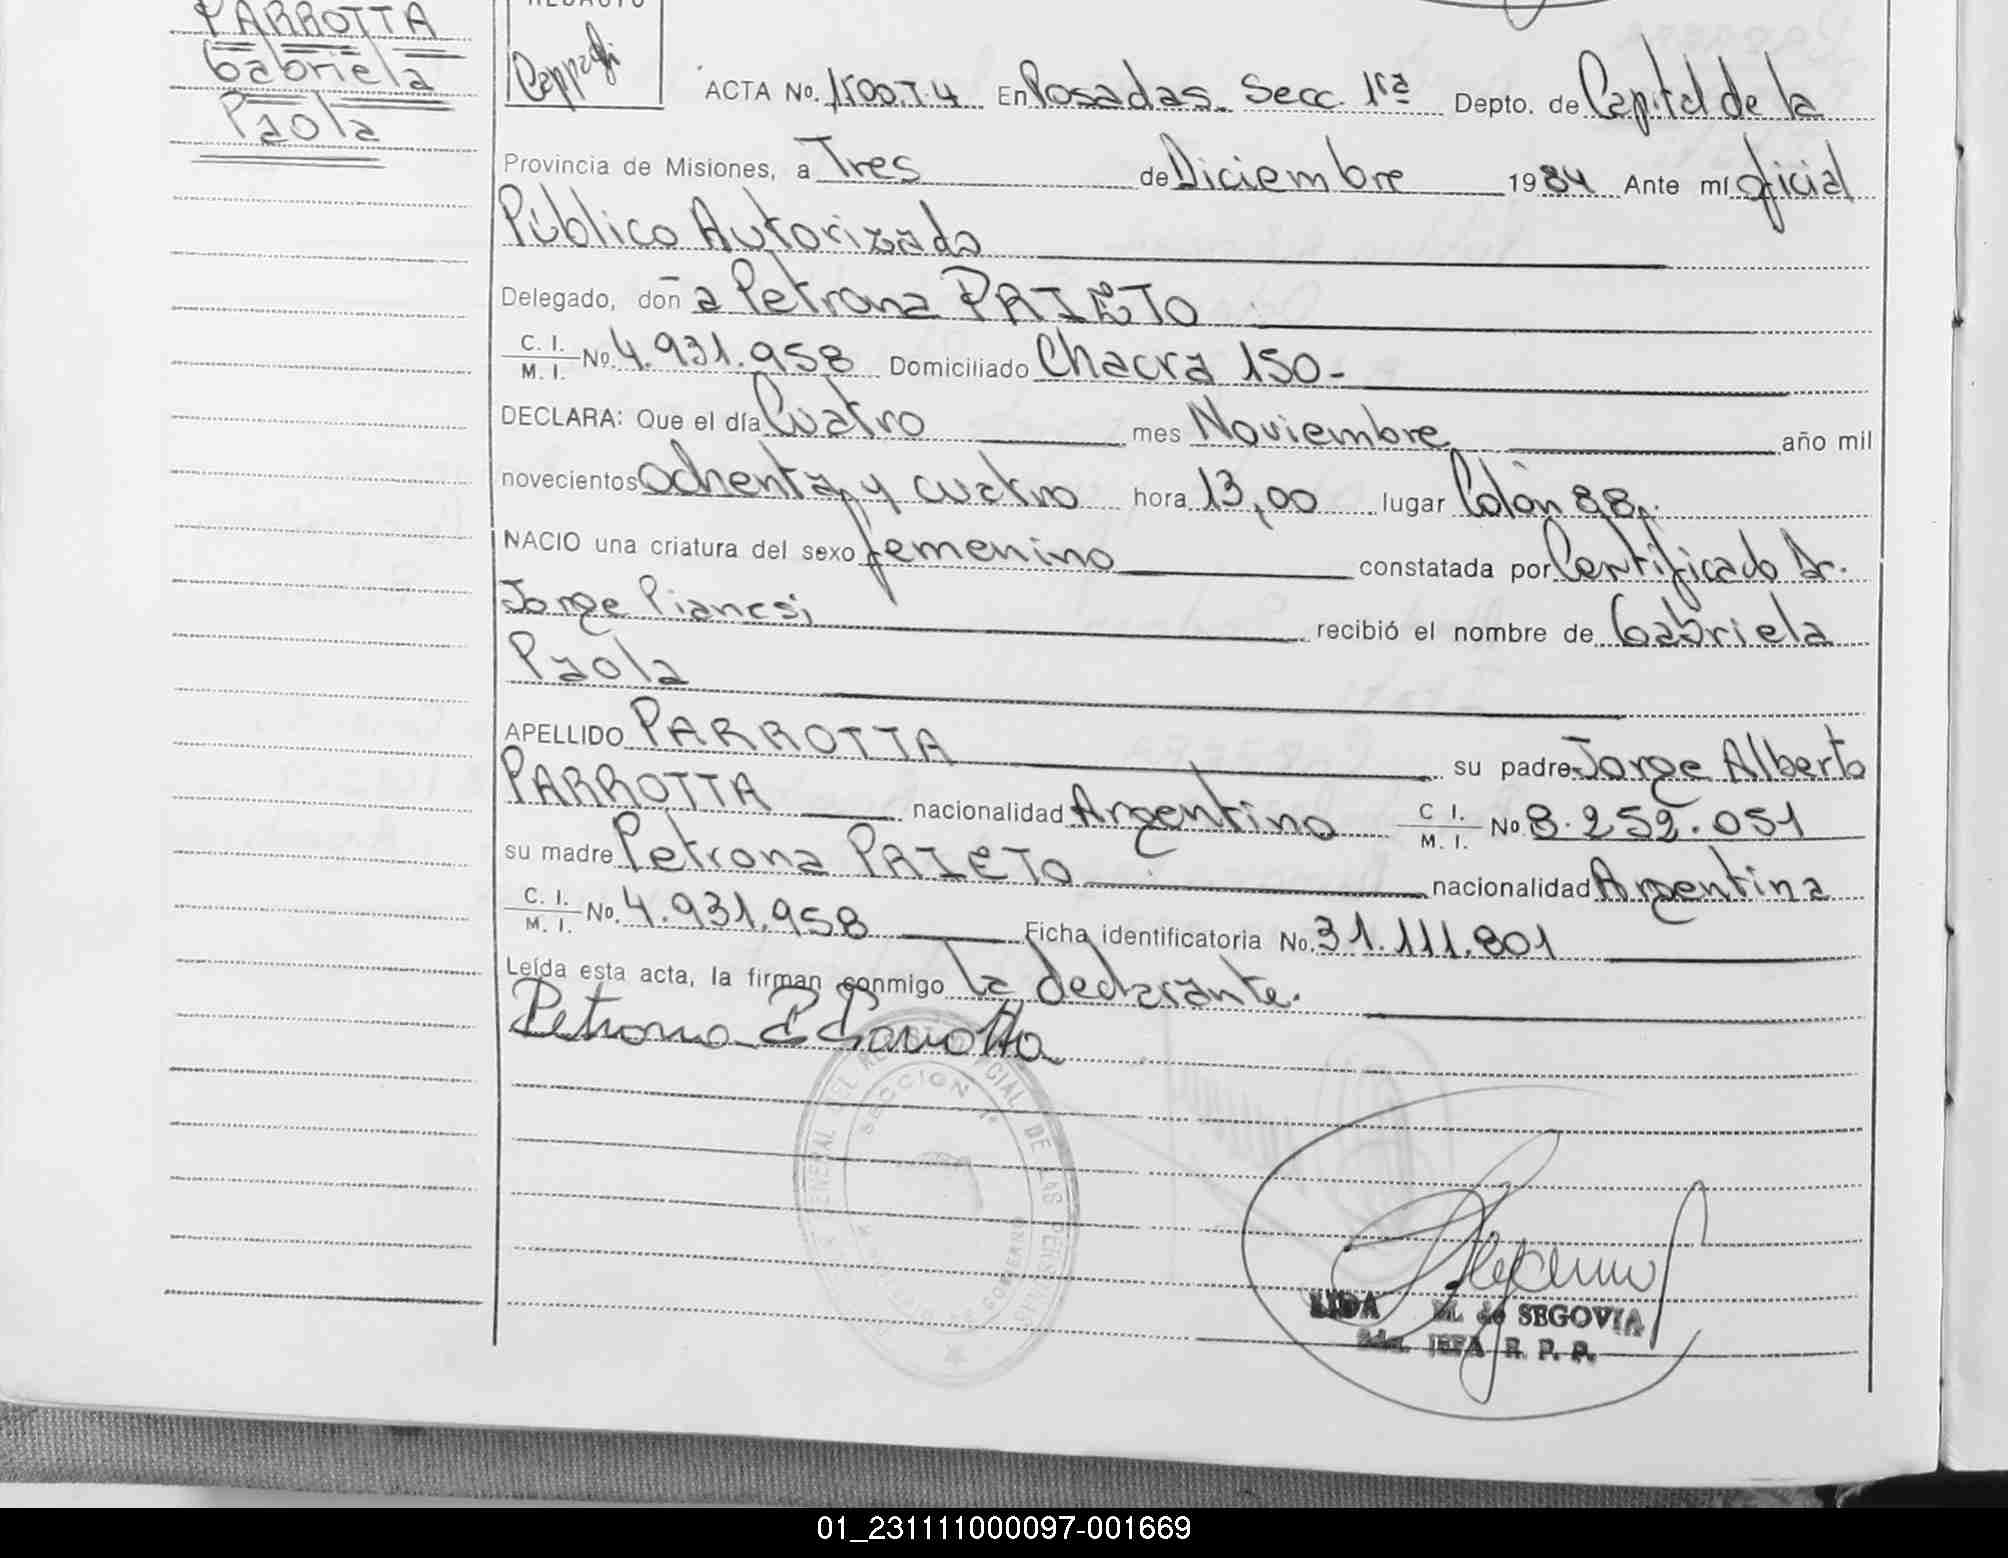 PARROTTA
Gabriela
Paola
REDACTO
ACTA No. 1500.T.4 En Posadas. Secc. 1ra Depto. de Capital de la
Provincia de Misiones, a Tres de Diciembre 1984 Ante mí oficial
Público Autorizado
Delegado, don a Petrona PRIETO
C. I.
M. I. No. 4.931.958 Domiciliado Chacra 150-
DECLARA: Que el día Cuatro mes Noviembre año mil
novecientos ochenta y cuatro hora 13,00 lugar Colón 88.
NACIO una criatura del sexo femenino constatada por Certificado Dr.
Jorge recibió el nombre de Gabriela
Paola
APELLIDO PARROTTA su padre Jorge Alberto
PARROTTA nacionalidad Argentino C I. M. I. No 8.252.051
su madre Petrona PRIETO nacionalidad Argentina
C. I.
M. I. No. 4.931.958 Ficha identificatoria No. 31.111.801
Leída esta acta, la firman conmigo la declarante.
Petrona P Parrotta
SECCION 1a
LIDA M. de SEGOVIA
JEFA R. P. P.
01_231111000097-001669